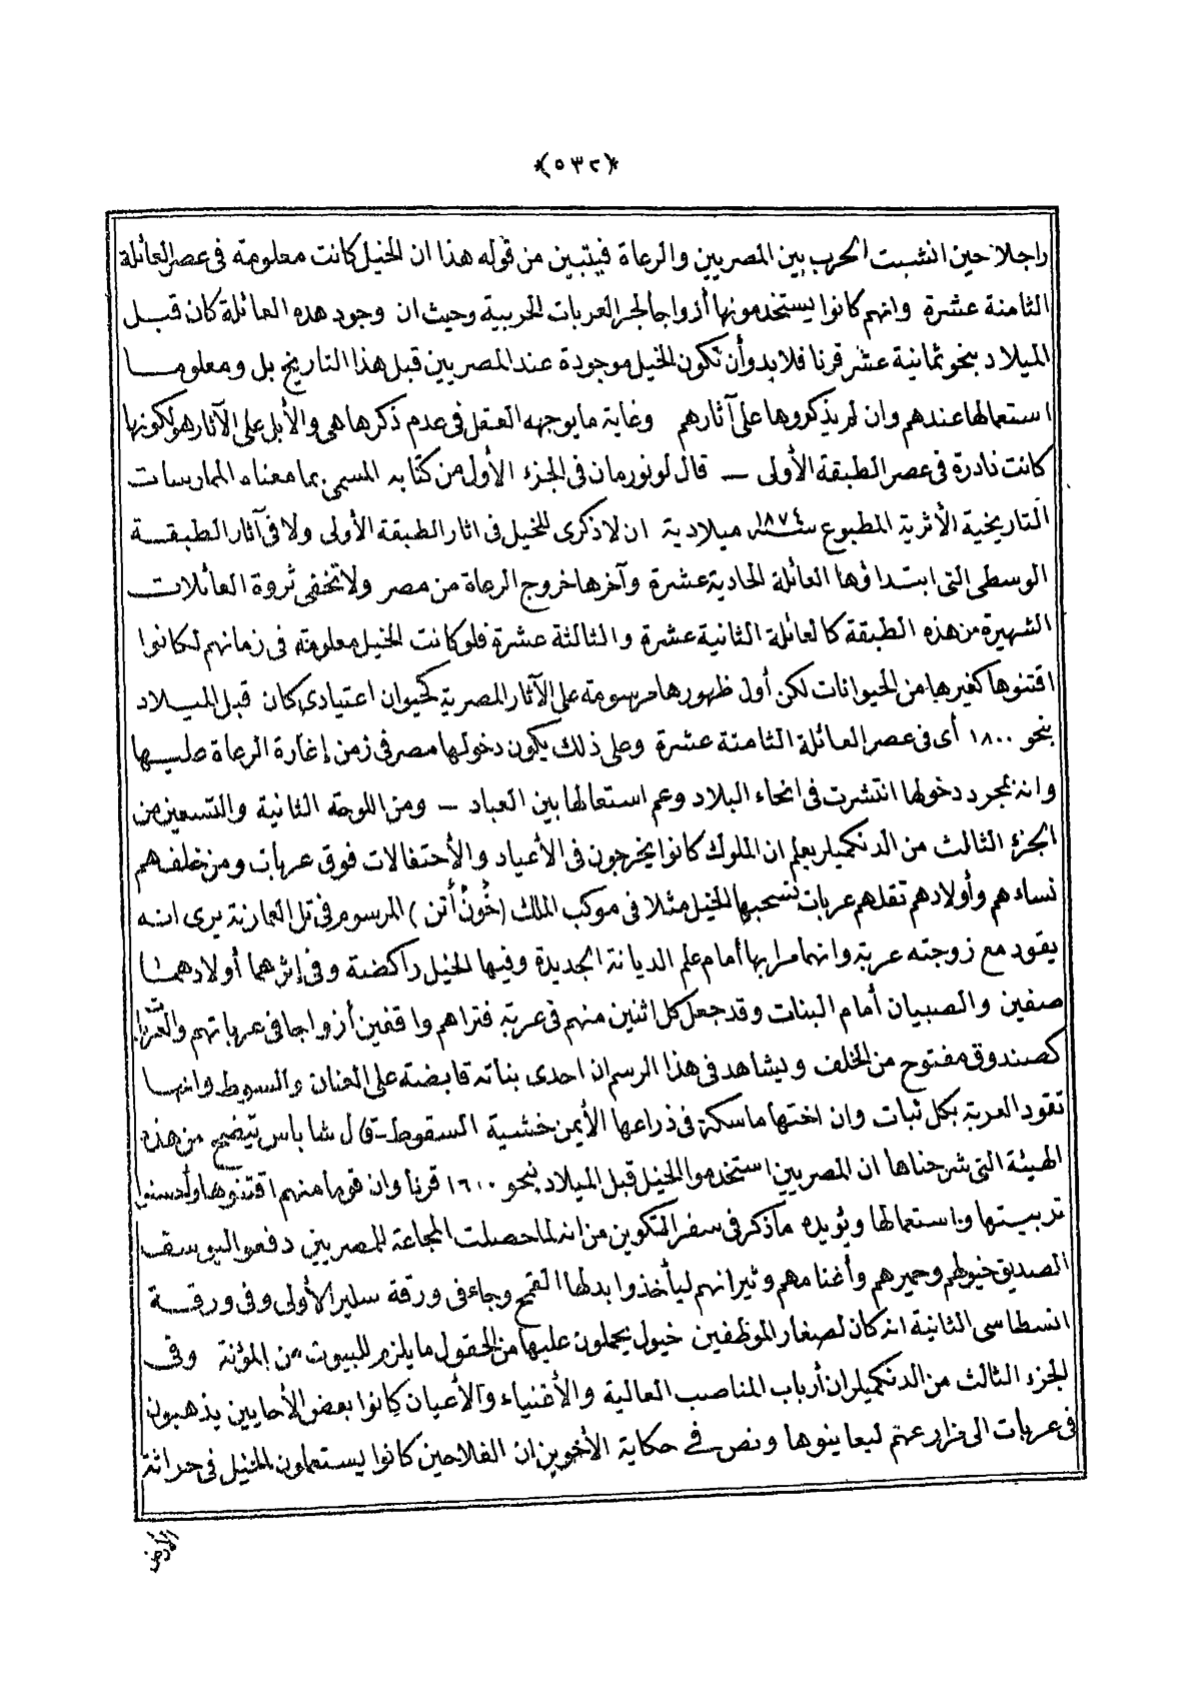 *(٥٣٢)*
راجلا حين انشبت الحرب بين المصريين والرعاة فيتبين من قوله هذا ان الخيل كانت معلومة فى عصر العائلة
الثامنة عشرة وانهم كانوا يستخدمونها أزواجا لجر العربات الحربية وحيث ان وجود هذه العائلة كان قبل
الميلاد بنحو ثمانية عشر قرنا فلا بد وأن تكون الخيل موجودة عند المصريين قبل هذا التاريخ بل ومعلوما
استعمالها عندهم وان لم يذكروها على آثارهم وغاية ما يوجهه العقل فى عدم ذكرها هى والأبل على الآثار هو لكونها
كانت نادرة فى عصر الطبقة الأولى — قال لونورمان فى الجزء الأول من كتابه المسمى بما معناه الممارسات
التاريخية الأثرية المطبوع سنة ١٨٧٤ ميلادية ان لا ذكرى للخيل فى اثار الطبقة الأولى ولا فى آثار الطبقة
الوسطى التى ابتداؤها العائلة الحادية عشرة وآخرها خروج الرعاة من مصر ولا تخفى ثروة العائلات
الشهيرة من هذه الطبقة كالعائلة الثانية عشرة والثالثة عشرة فلو كانت الخيل معلومة فى زمانهم لكانوا
اقتنوها كغيرها من الحيوانات لكن أول ظهورها مرسومة على الآثار المصرية كحيوان اعتيادى كان قبل الميلاد
بنحو ١٨٠٠ أى فى عصر العائلة الثامنة عشرة وعلى ذلك يكون دخولها مصر فى زمن إغارة الرعاة عليها
وانه بمجرد دخولها انتشرت فى انحاء البلاد وعم استعمالها بين العباد — ومن اللوحة الثانية والتسعين من
الجزء الثالث من الدنكميلر يعلم ان الملوك كانوا يخرجون فى الأعياد والأحتفالات فوق عربات ومن خلفهم
نساءهم وأولادهم تقلهم عربات تسحبها الخيل مثلا فى موكب الملك (خُونْ أَتن) المرسوم فى تل العمارنة يرى انه
يقود مع زوجته عربة وانهما مرا بها أمام علم الديانة الجديدة وفيها الخيل راكضة وفى إثرهما أولادهما
صفين والصبيان أمام البنات وقد جعل كل اثنين منهم فى عربة فتراهم واقفين أزواجا فى عرباتهم والعربات
كصندوق مفتوح من الخلف ويشاهد فى هذا الرسم ان احدى بناته قابضة على العنان والسوط وانها
تقود العربة بكل ثبات وان اختها ماسكة فى ذراعها الأيمن خشية السقوط - قال شاباس يتضح من هذه
الهيئة التى شرحناها ان المصريين استخدموا الخيل قبل الميلاد بنحو ١٦٠٠ قرنا وان قوما منهم اقتنوها وأحسنوا
تربيتها واستعمالها ويؤيده ما ذكر فى سفر التكوين من انه لما حصلت المجاعة للمصريين دفعوا ليوسف
الصديق خيولهم وحميرهم وأغنامهم وثيرانهم ليأخذوا بدلها القمح وجاء فى ورقة سلير الأولى وفى ورقة
انسطاسى الثانية انه كان لصغار الموظفين خيول يحملون عليها من الحقول ما يلزم للبيوت من المؤنة وفى
الجزء الثالث من الدنكميلر ان أرباب المناصب العالية والأغنياء والأعيان كانوا بعض الأحايين يذهبون
فى عربات الى مزارعهم ليعاينوها ونص فى حكاية الأخوين ان الفلاحين كانوا يستعملون الخيل فى حراثة
الأرض